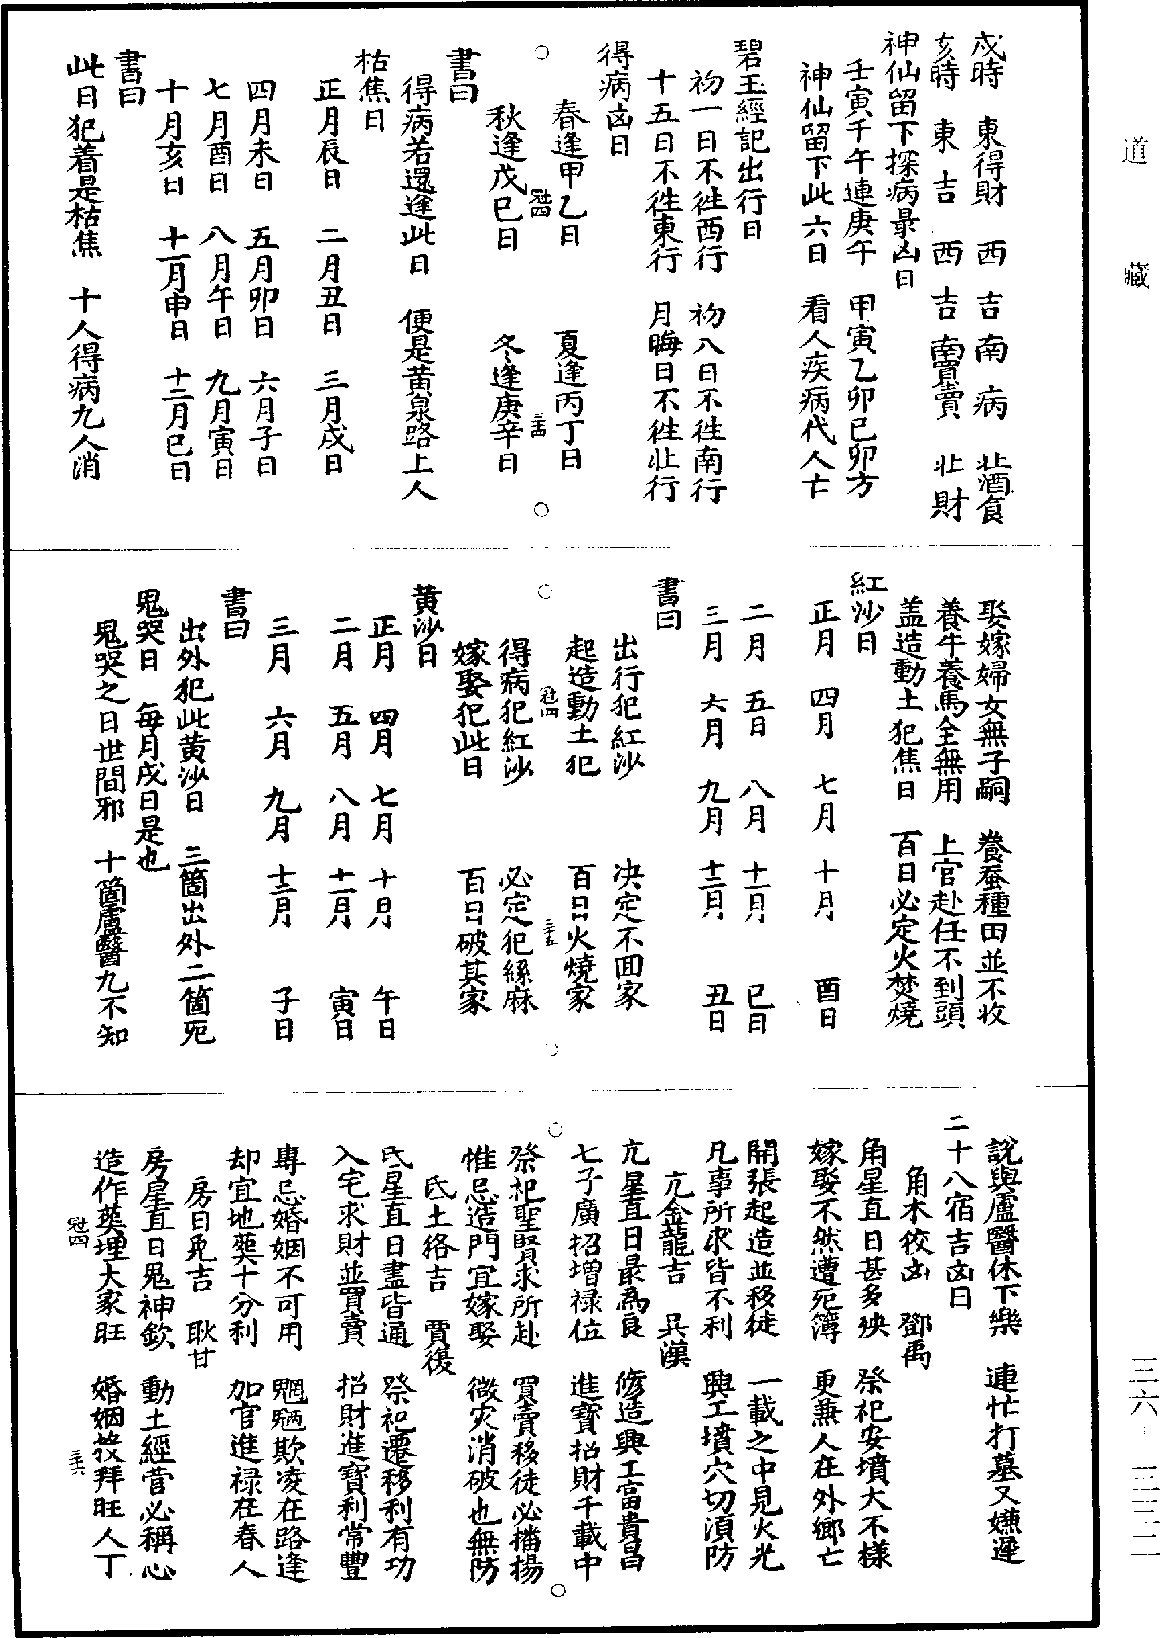 道藏
戌時　東得財　西　吉　南　病　北酒食
亥時　東　吉　西　吉　南買賣　北　財
神仙留下探病最凶日
壬寅千午連庚午　甲寅乙卯已卯方
神仙留下此六日　看人疾病代人亡
碧玉經記出行日
初一日不徃西行　初八日不徃南行
十五日不徃東行　月晦日不徃北行
得病凶日
春逢甲乙日　夏逢丙丁日
冠四　三十四
秋逢戊巳日　冬逢庚辛日
書曰
得病若還逢此日　便是黄泉路上人
枯焦日
正月辰日　二月丑日　三月戌日
四月未日　五月卯日　六月子日
七月酉日　八月午日　九月寅日
十月亥日　十一月申日　十二月巳日
書曰
此日犯着是枯焦　十人得病九人消
娶嫁婦女無子嗣　養蚕種田並不收
養牛養馬全無用　上官赴任不到頭
盖造動土犯焦日　百日必定火焚燒
紅沙日
正月　四月　七月　十月　酉日
二月　五日　八月　十一月　巳日
三月　六月　九月　十二月　丑日
書曰
出行犯紅沙　决定不囬家
起造動土犯　百日火燒家
冠四　三十五
得病犯紅沙　必定犯絲麻
嫁娶犯此日　百日破其家
黄沙日
正月　四月　七月　十月　午日
二月　五月　八月　十一月　寅日
三月　六月　九月　十二月　子日
書曰
出外犯此黄沙日　三箇出外二箇死
鬼哭日　每月戌日是也
鬼哭之日世間邪　十箇盧醫九不知
說與盧醫休下藥　連忙打墓又嫌遲
二十八宿吉凶日
角木蛟凶　鄧禹
角星直日甚多殃　祭祀安墳大不樣
嫁娶不然遭死簿　更兼人在外鄉亡
開張起造並移徙　一載之中見火光
凡事所求皆不利　興工墳穴切須防
亢金龍吉　吳漢
亢星直日最為良　修造興工富貴昌
七子廣招增禄位　進寶招財千載中
祭祀聖賢求所赴　買賣移徙必播揚
惟忌造門宜嫁娶　微灾消破也無防
氐土狢吉　賈復
氐星直日盡皆通　祭祀遷移利有功
入宅求財並買賣　招財進寶利常豐
專忌婚姻不可用　魍魎欺凌在路逢
却宜地塟十分利　加官進禄在春人
房日兔吉　耿甘
房星直日鬼神欽　動土經营必稱心
造作塟埋大家旺　婚姻筵拜旺人丁
冠四　三十六
三六·三三二